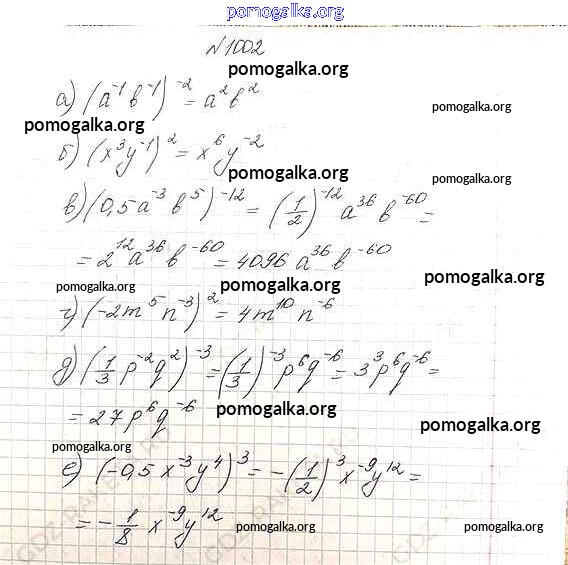 pomogalka.org
№1002
pomogalka.org
а) (a⁻¹b⁻¹)⁻² = a²b²
pomogalka.org
pomogalka.org
б) (x³y⁻¹)² = x⁶y⁻²
pomogalka.org
pomogalka.org
в) (0,5a⁻³b⁵)⁻¹² = (1/2)⁻¹² a³⁶b⁻⁶⁰ =
= 2¹²a³⁶b⁻⁶⁰ = 4096a³⁶b⁻⁶⁰
pomogalka.org
pomogalka.org
pomogalka.org
г) (-2m⁵n⁻³)² = 4m¹⁰n⁻⁶
д) (1/3 p⁻²q²)⁻³ = (1/3)⁻³p⁶q⁻⁶ = 3³p⁶q⁻⁶ =
= 27p⁶q⁻⁶
pomogalka.org
pomogalka.org
pomogalka.org
е) (-0,5x⁻³y⁴)³ = -(1/2)³x⁻⁹y¹² =
= -1/8 x⁻⁹y¹²
pomogalka.org
pomogalka.org